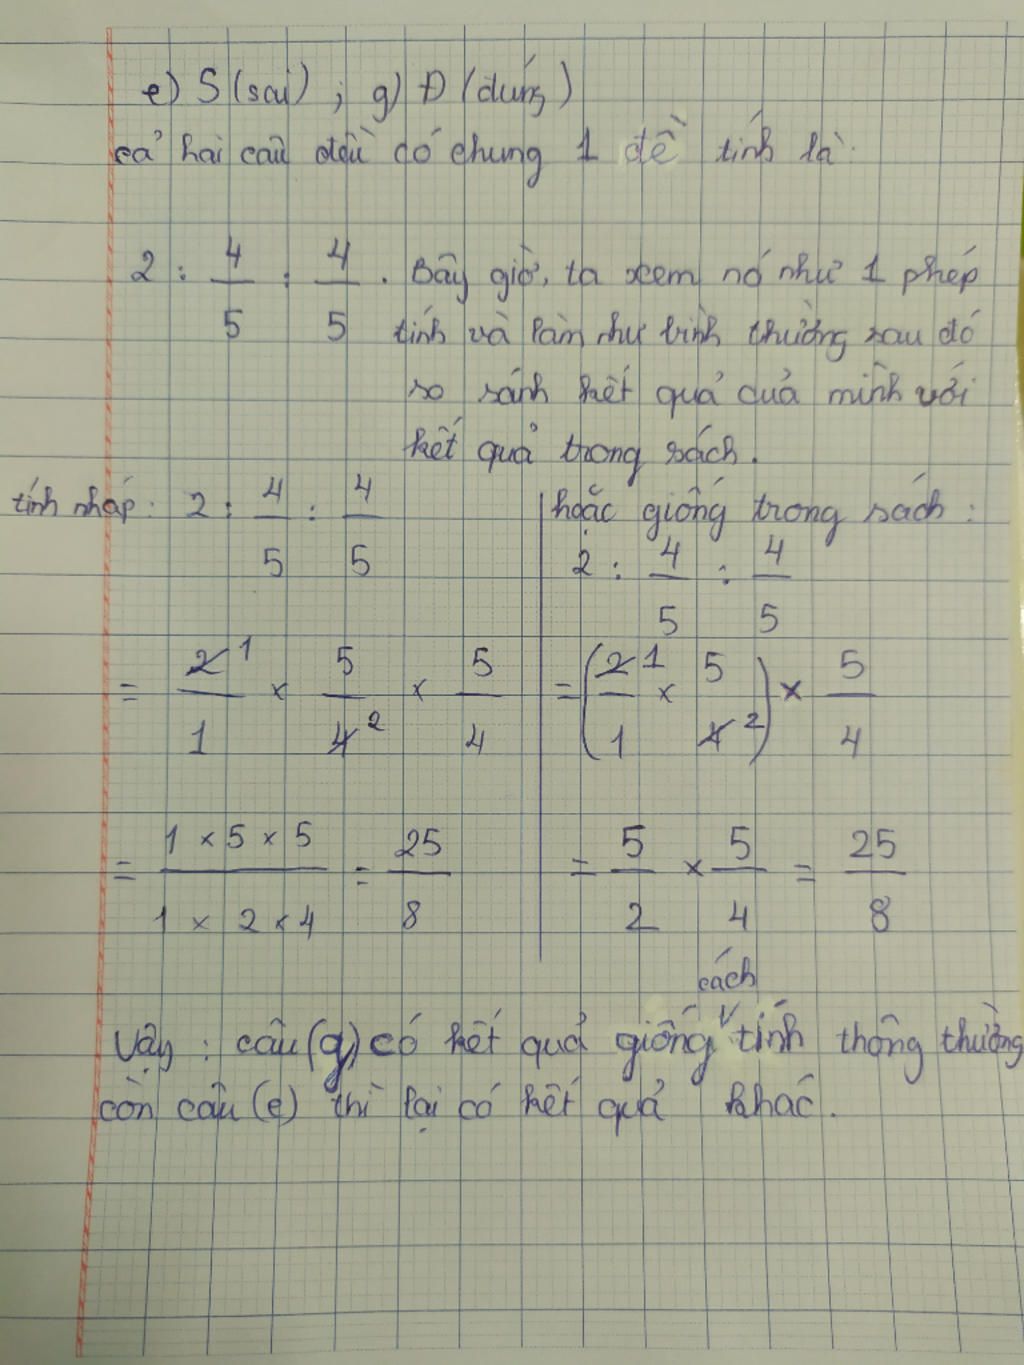 e) S (sai) ; g) Đ (đúng)
cả hai câu đều có chung 1 đề tính là:
2 : 4/5 : 4/5 . Bây giờ, ta xem nó như 1 phép
tính và làm như bình thường sau đó
so sánh kết quả của mình với
kết quả trong sách.
tính nháp: 2 : 4/5 : 4/5
= 2/1 × 5/4 × 5/4
1 2
= 1 × 5 × 5 / 1 × 2 × 4 = 25/8
hoặc giống trong sách:
2 : 4/5 : 4/5
= (2/1 × 5/4) × 5/4
1 2
= 5/2 × 5/4 = 25/8
Vậy: câu (g) có kết quả giống cách tính thông thường
còn câu (e) thì lại có kết quả khác.